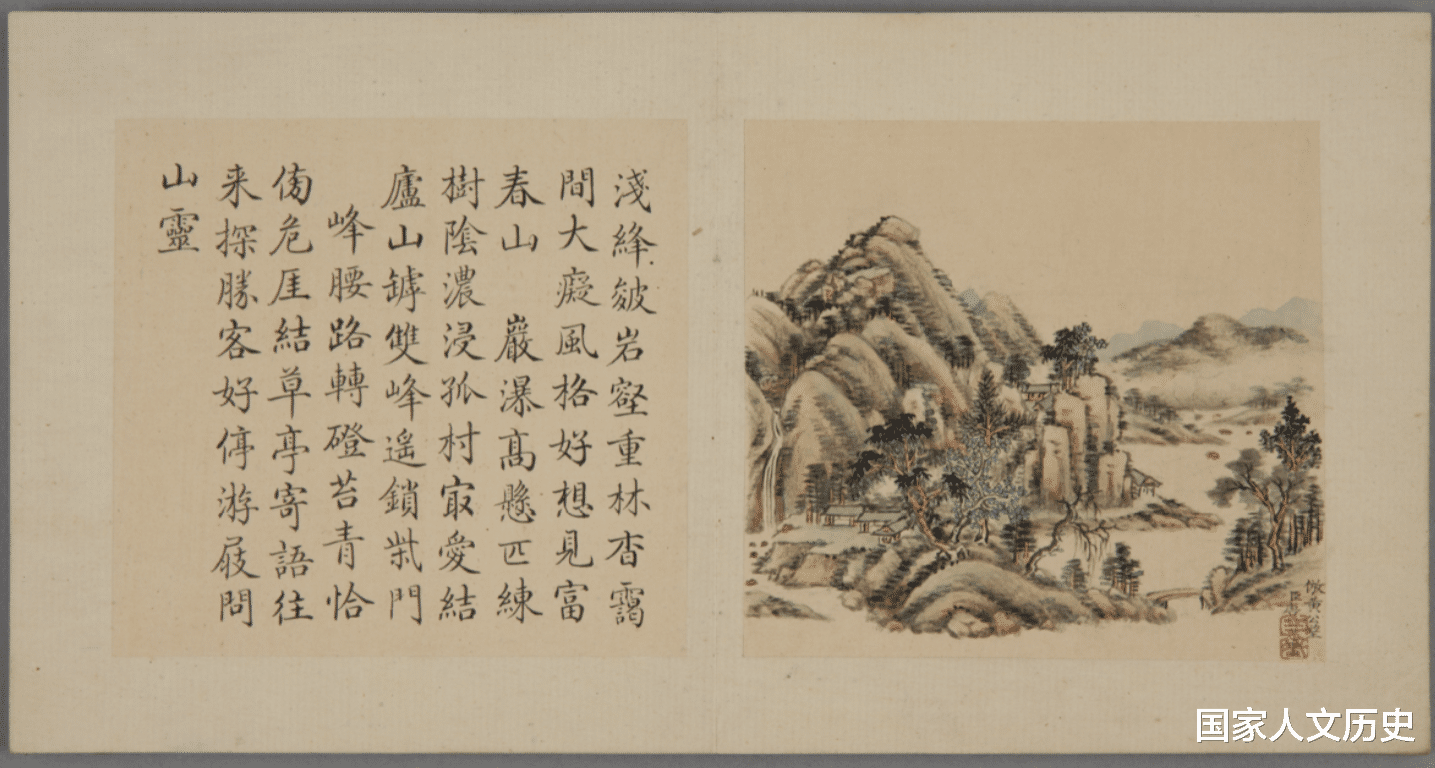 淺絳皴岩壑重林杳靄
間大癡風格好想見富
春山　巖瀑高懸匹練
樹陰濃浸孤村㝡愛結
廬山罅雙峰遙鎖柴門
峰腰路轉磴苔青恰
傍危厓結草亭寄語往
来探勝客好停游屐問
山靈
倣黄公望
國家人文历史